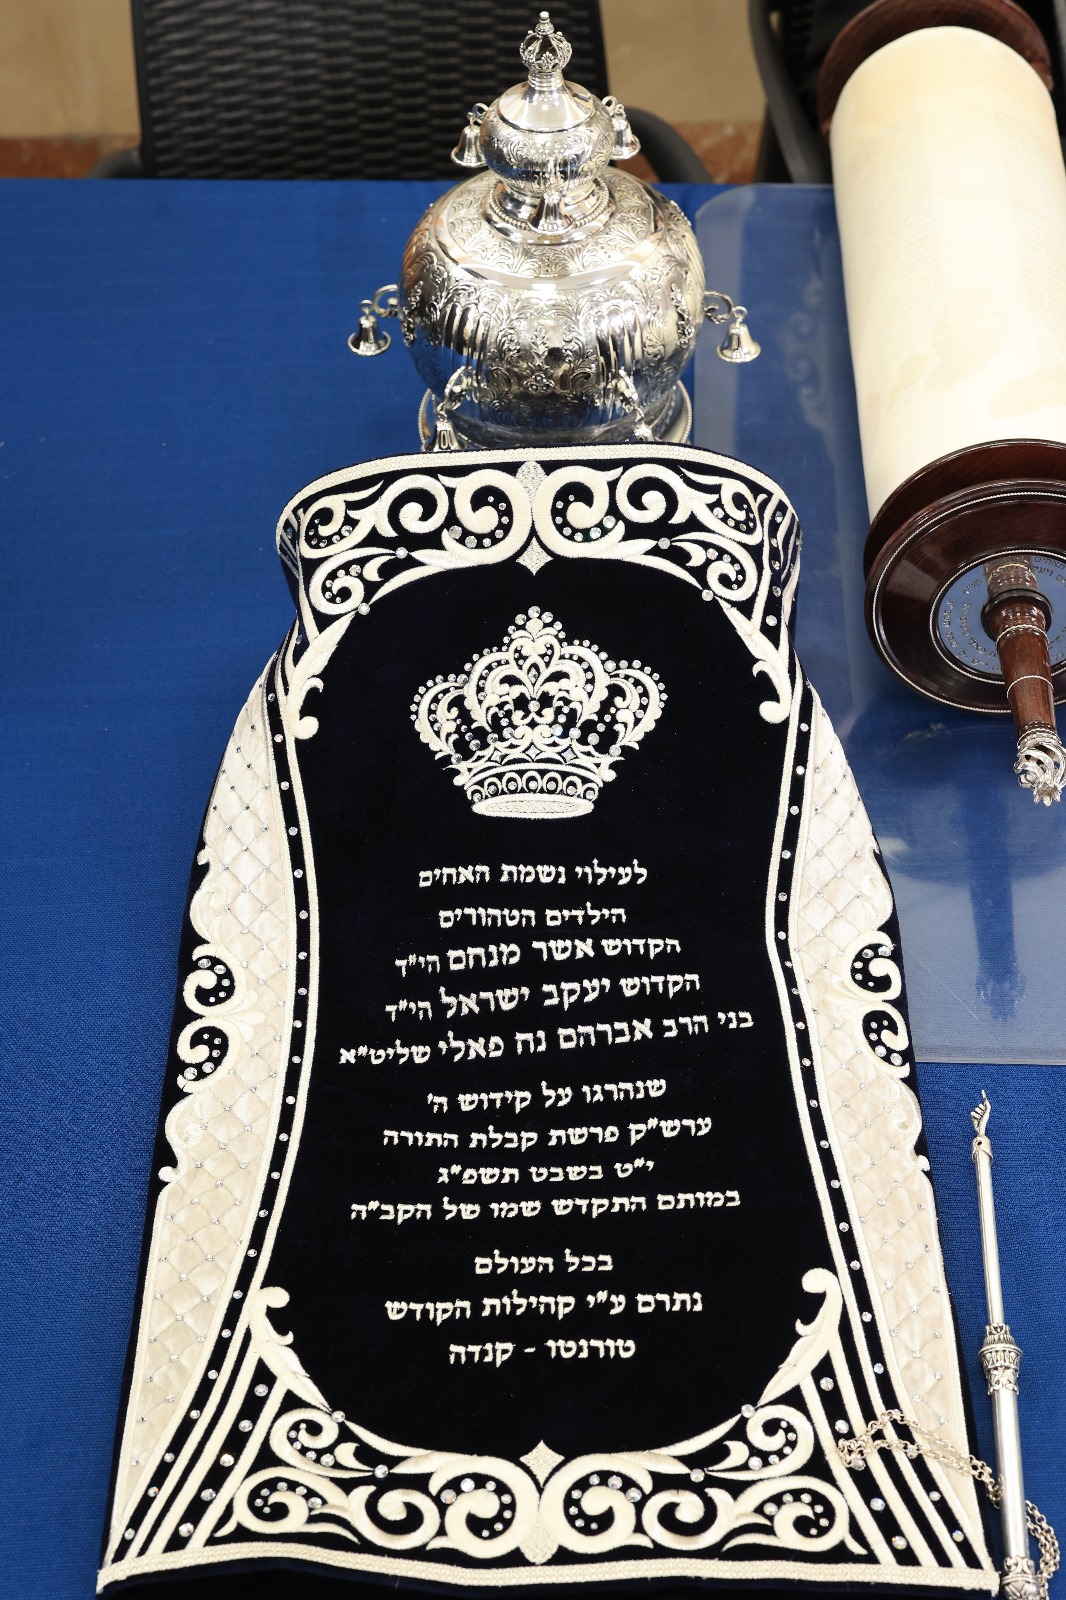 לעילוי נשמת האחים
הילדים הטהורים
הקדוש אשר מנחם הי"ד
הקדוש יעקב ישראל הי"ד
בני הרב אברהם נח פאלי שליט"א
שנהרגו על קידוש ה'
ערש"ק פרשת קבלת התורה
י"ט בשבט תשפ"ג
במותם התקדש שמו של הקב"ה
בכל העולם
נתרם ע"י קהילות הקודש
טורנטו - קנדה